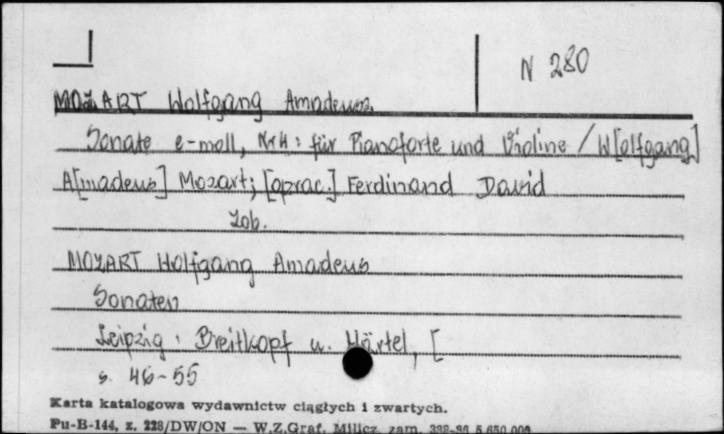 N 280
MOZART Wolfgang Amadeus
Sonate e-moll, Nr 4 : für Pianoforte und Violine / W[olfgang]
A[madeus] Mozart ; [oprac.] Ferdinand David
Zob.
MOZART Wolfgang Amadeus
Sonaten
Leipzig : Breitkopf u. Härtel, [
s. 46-55
Karta katalogowa wydawnictw ciągłych i zwartych.
Pu-B-144, z. 228/DW/ON — W.Z.Graf. Milicz zam.